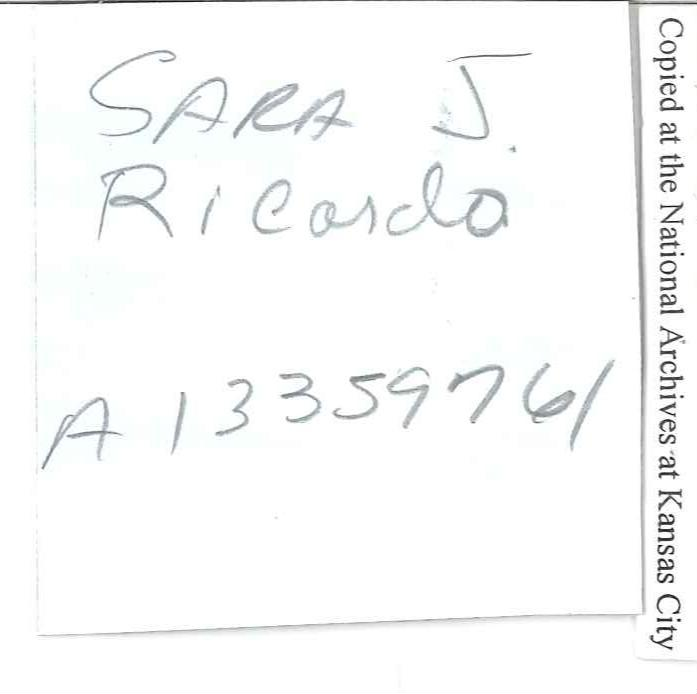 SARA J.
Ricardo
A 13359761
Copied at the National Archives at Kansas City